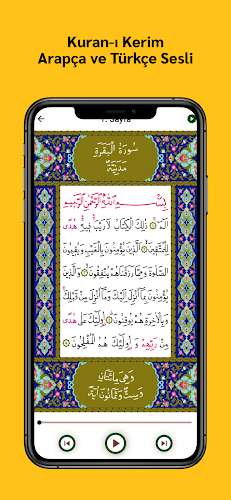 Kuran-ı Kerim
Arapça ve Türkçe Sesli
1. Sayfa
سُورَةُ الْبَقَرَةِ
مَدَنِيَّةٌ
بِسْمِ اللّٰهِ الرَّحْمٰنِ الرَّحِيمِ
الٓمٓ ۝ ذٰلِكَ الْكِتَابُ لَا رَيْبَ فِيهِ هُدًى
لِلْمُتَّقِينَ ۝ الَّذِينَ يُؤْمِنُونَ بِالْغَيْبِ وَيُقِيمُونَ
الصَّلٰوةَ وَمِمَّا رَزَقْنَاهُمْ يُنْفِقُونَ ۝ وَالَّذِينَ
يُؤْمِنُونَ بِمَا اُنْزِلَ اِلَيْكَ وَمَا اُنْزِلَ مِنْ قَبْلِكَ
وَبِالْاٰخِرَةِ هُمْ يُوقِنُونَ ۝ اُولٰئِكَ عَلٰى هُدًى
مِنْ رَبِّهِمْ وَاُولٰئِكَ هُمُ الْمُفْلِحُونَ ۝
وَهِيَ مِائَتَانِ
وَسِتٌّ وَثَمَانُونَ اٰيَةً